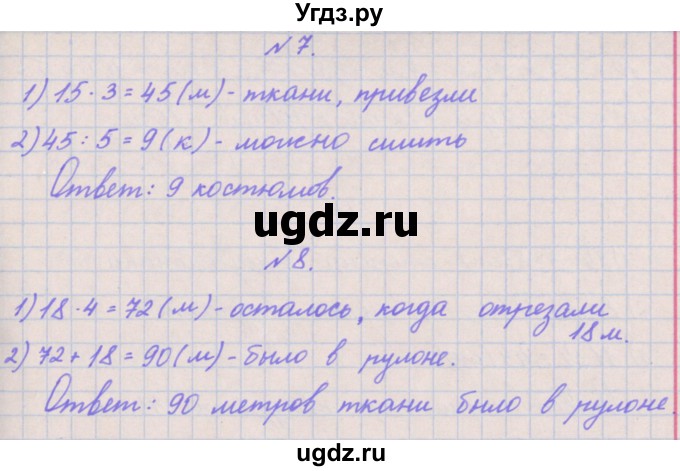 Угдз.ру
№ 7.
1) 15 · 3 = 45 (м) - ткани, привезли
2) 45 : 5 = 9 (к) - можно сшить
Ответ: 9 костюмов.
ugdz.ru
№ 8.
1) 18 · 4 = 72 (м) - осталось, когда отрезали
18 м.
2) 72 + 18 = 90 (м) - было в рулоне.
Ответ: 90 метров ткани было в рулоне.
ugdz.ru